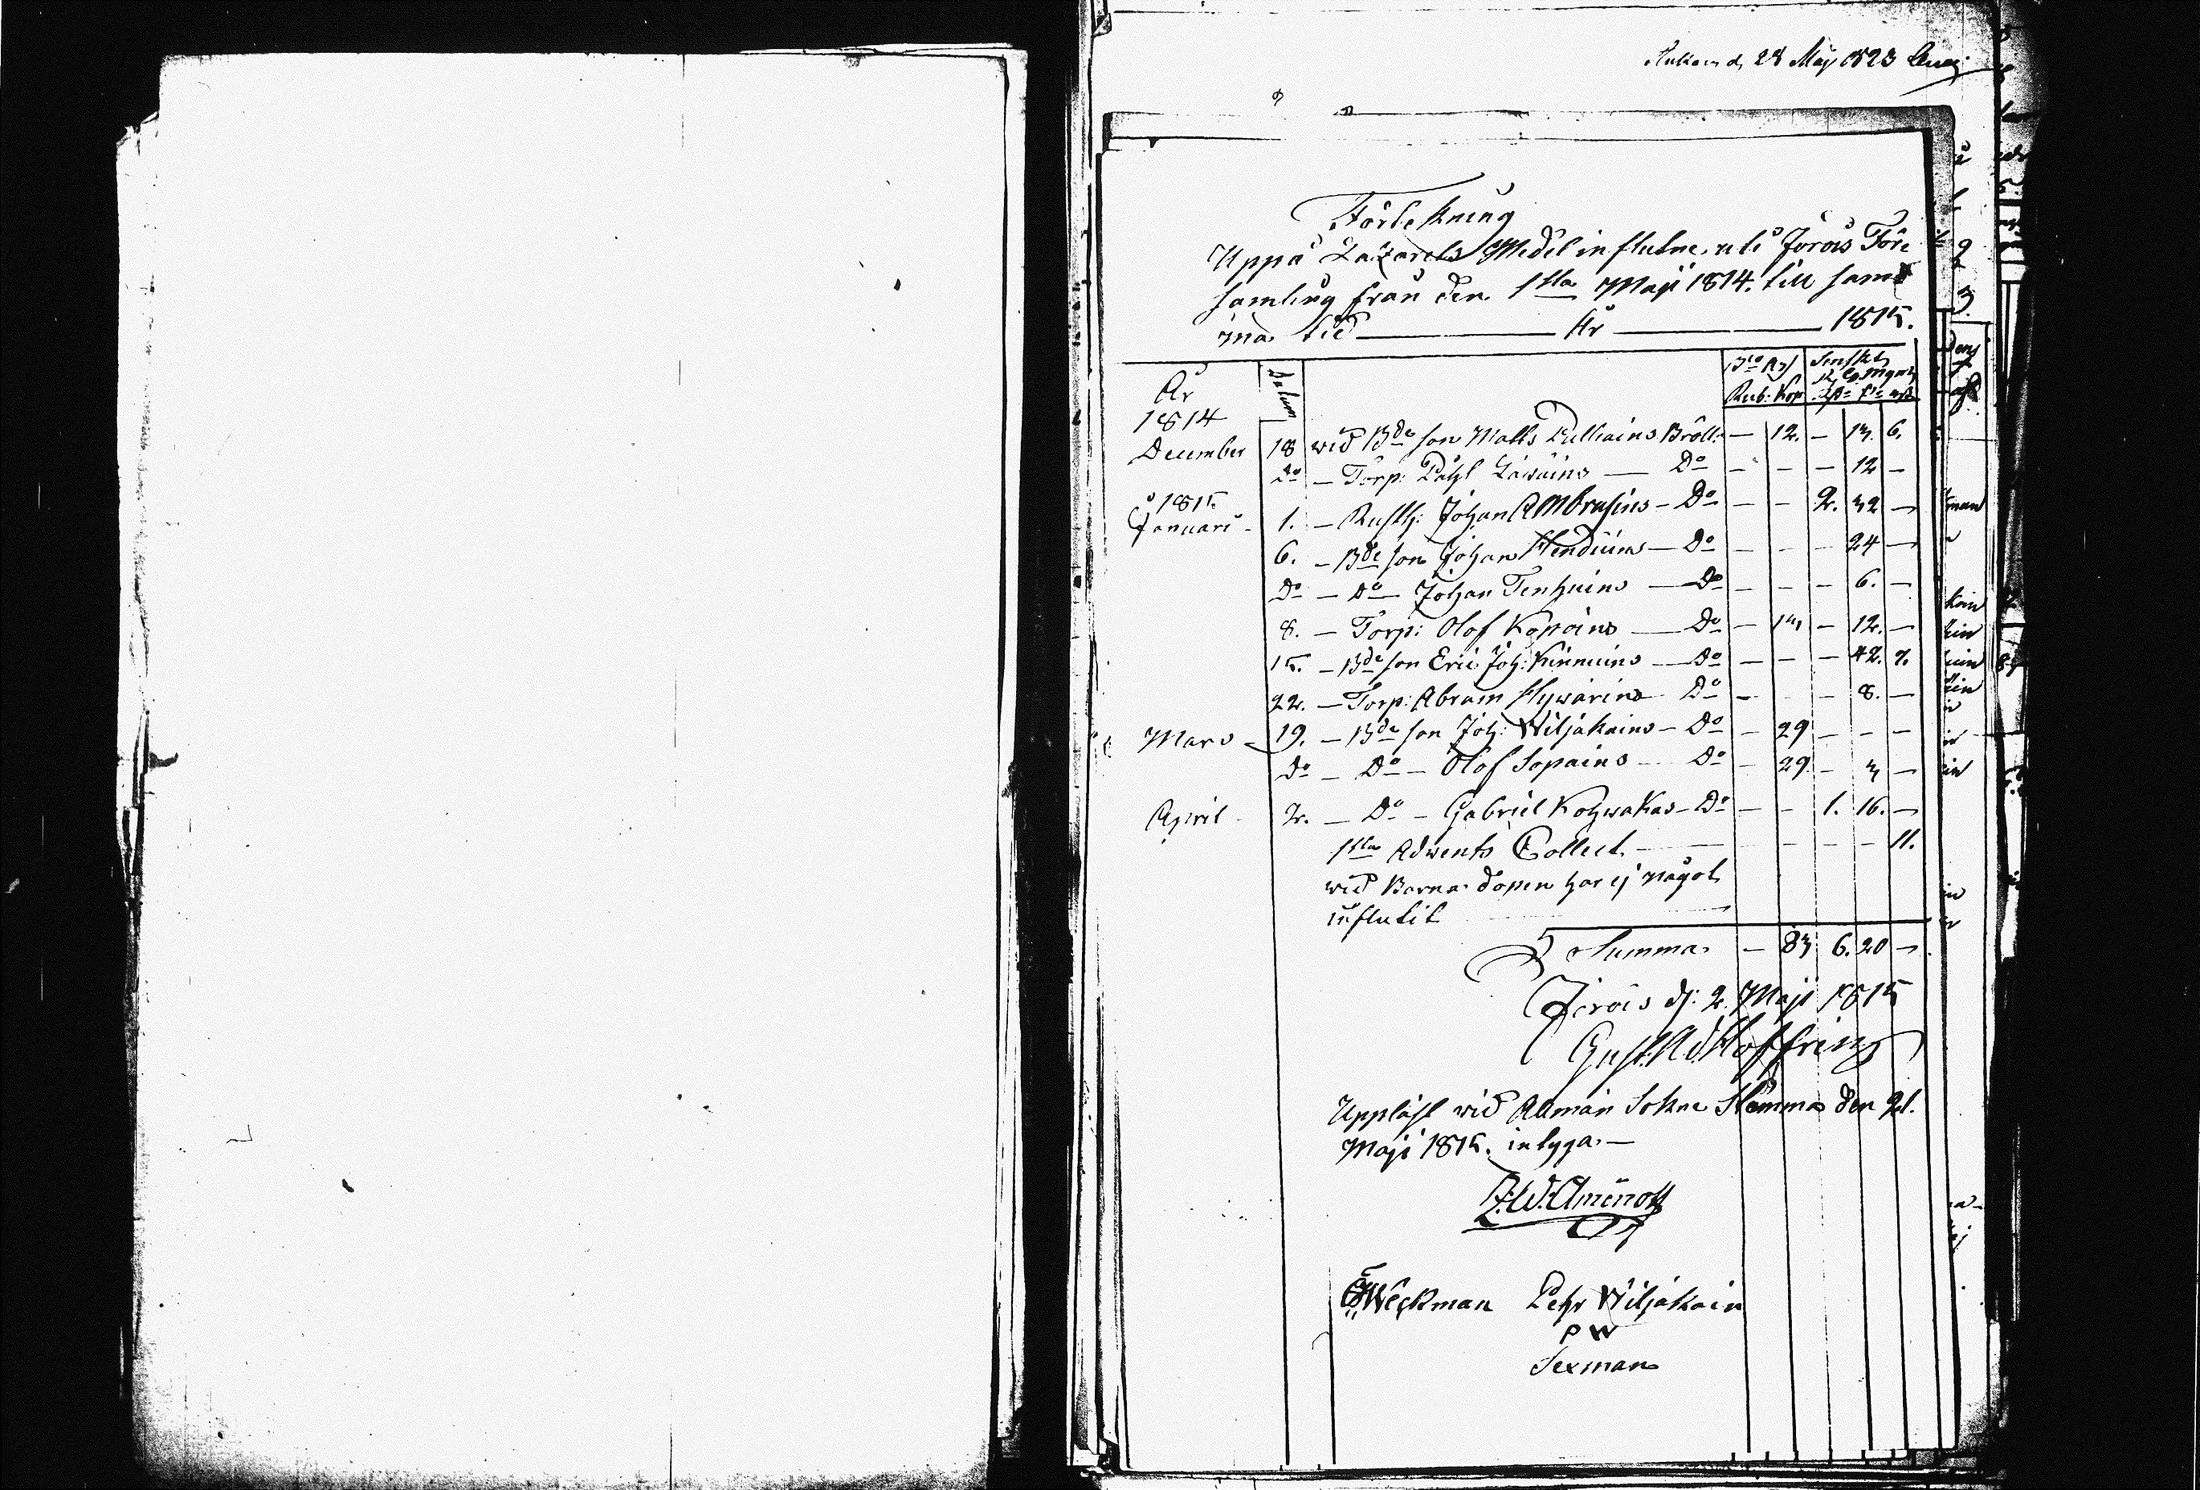 d. 28 Maij 1823
Förtekning
Uppå Lazarets Medel influtne uti Jorois För
samling från den 1sta Maji 1814. till sam
ma tid — År — 1815.
År
Datum
Bco As
Rub. Kop
1814
December 18 wid Bde son Matts Pulliains Bröll. — 12. — 13. 6.
Do — Torp: Påhl Läwäins — Do — — — 12 —
1815
Januari 1. — Rusth: Johan Ambrusins — Do — — 2. 32 —
6. — Bde son Johan Henduins — Do — — — 24 —
Do — Do — Johan Tenhuins — Do — — — 6. —
8. — Torp: Olof Kopoins — Do — 13 — 12. —
15. — Bde son Eric Joh: Kinnuins — Do — — — 42. 7.
22. — Torp: Abram Hywärins — Do — — — 8. —
Mars 19. — Bde son Joh: Wiljakains — Do — 29 — — —
Do — Do — Olof Sopains — Do — 29 — 3 —
April 2. — Do — Gabriel Kohwakas — Do — — 1. 16. —
1sta Adwents Collect — — — — — 11.
wid Barna dopen har ej något
influtit
Summa — 83 6. 20 —
Jorois d: 2 Maji 1815
Gust. Ad Hoffrin
Uppläst wid Allmän Sokne Stämma den 21.
Maji 1815. intyga. —
Z. W. Amenoff
Weckman Pehr Wiljakain
P W
Sexman